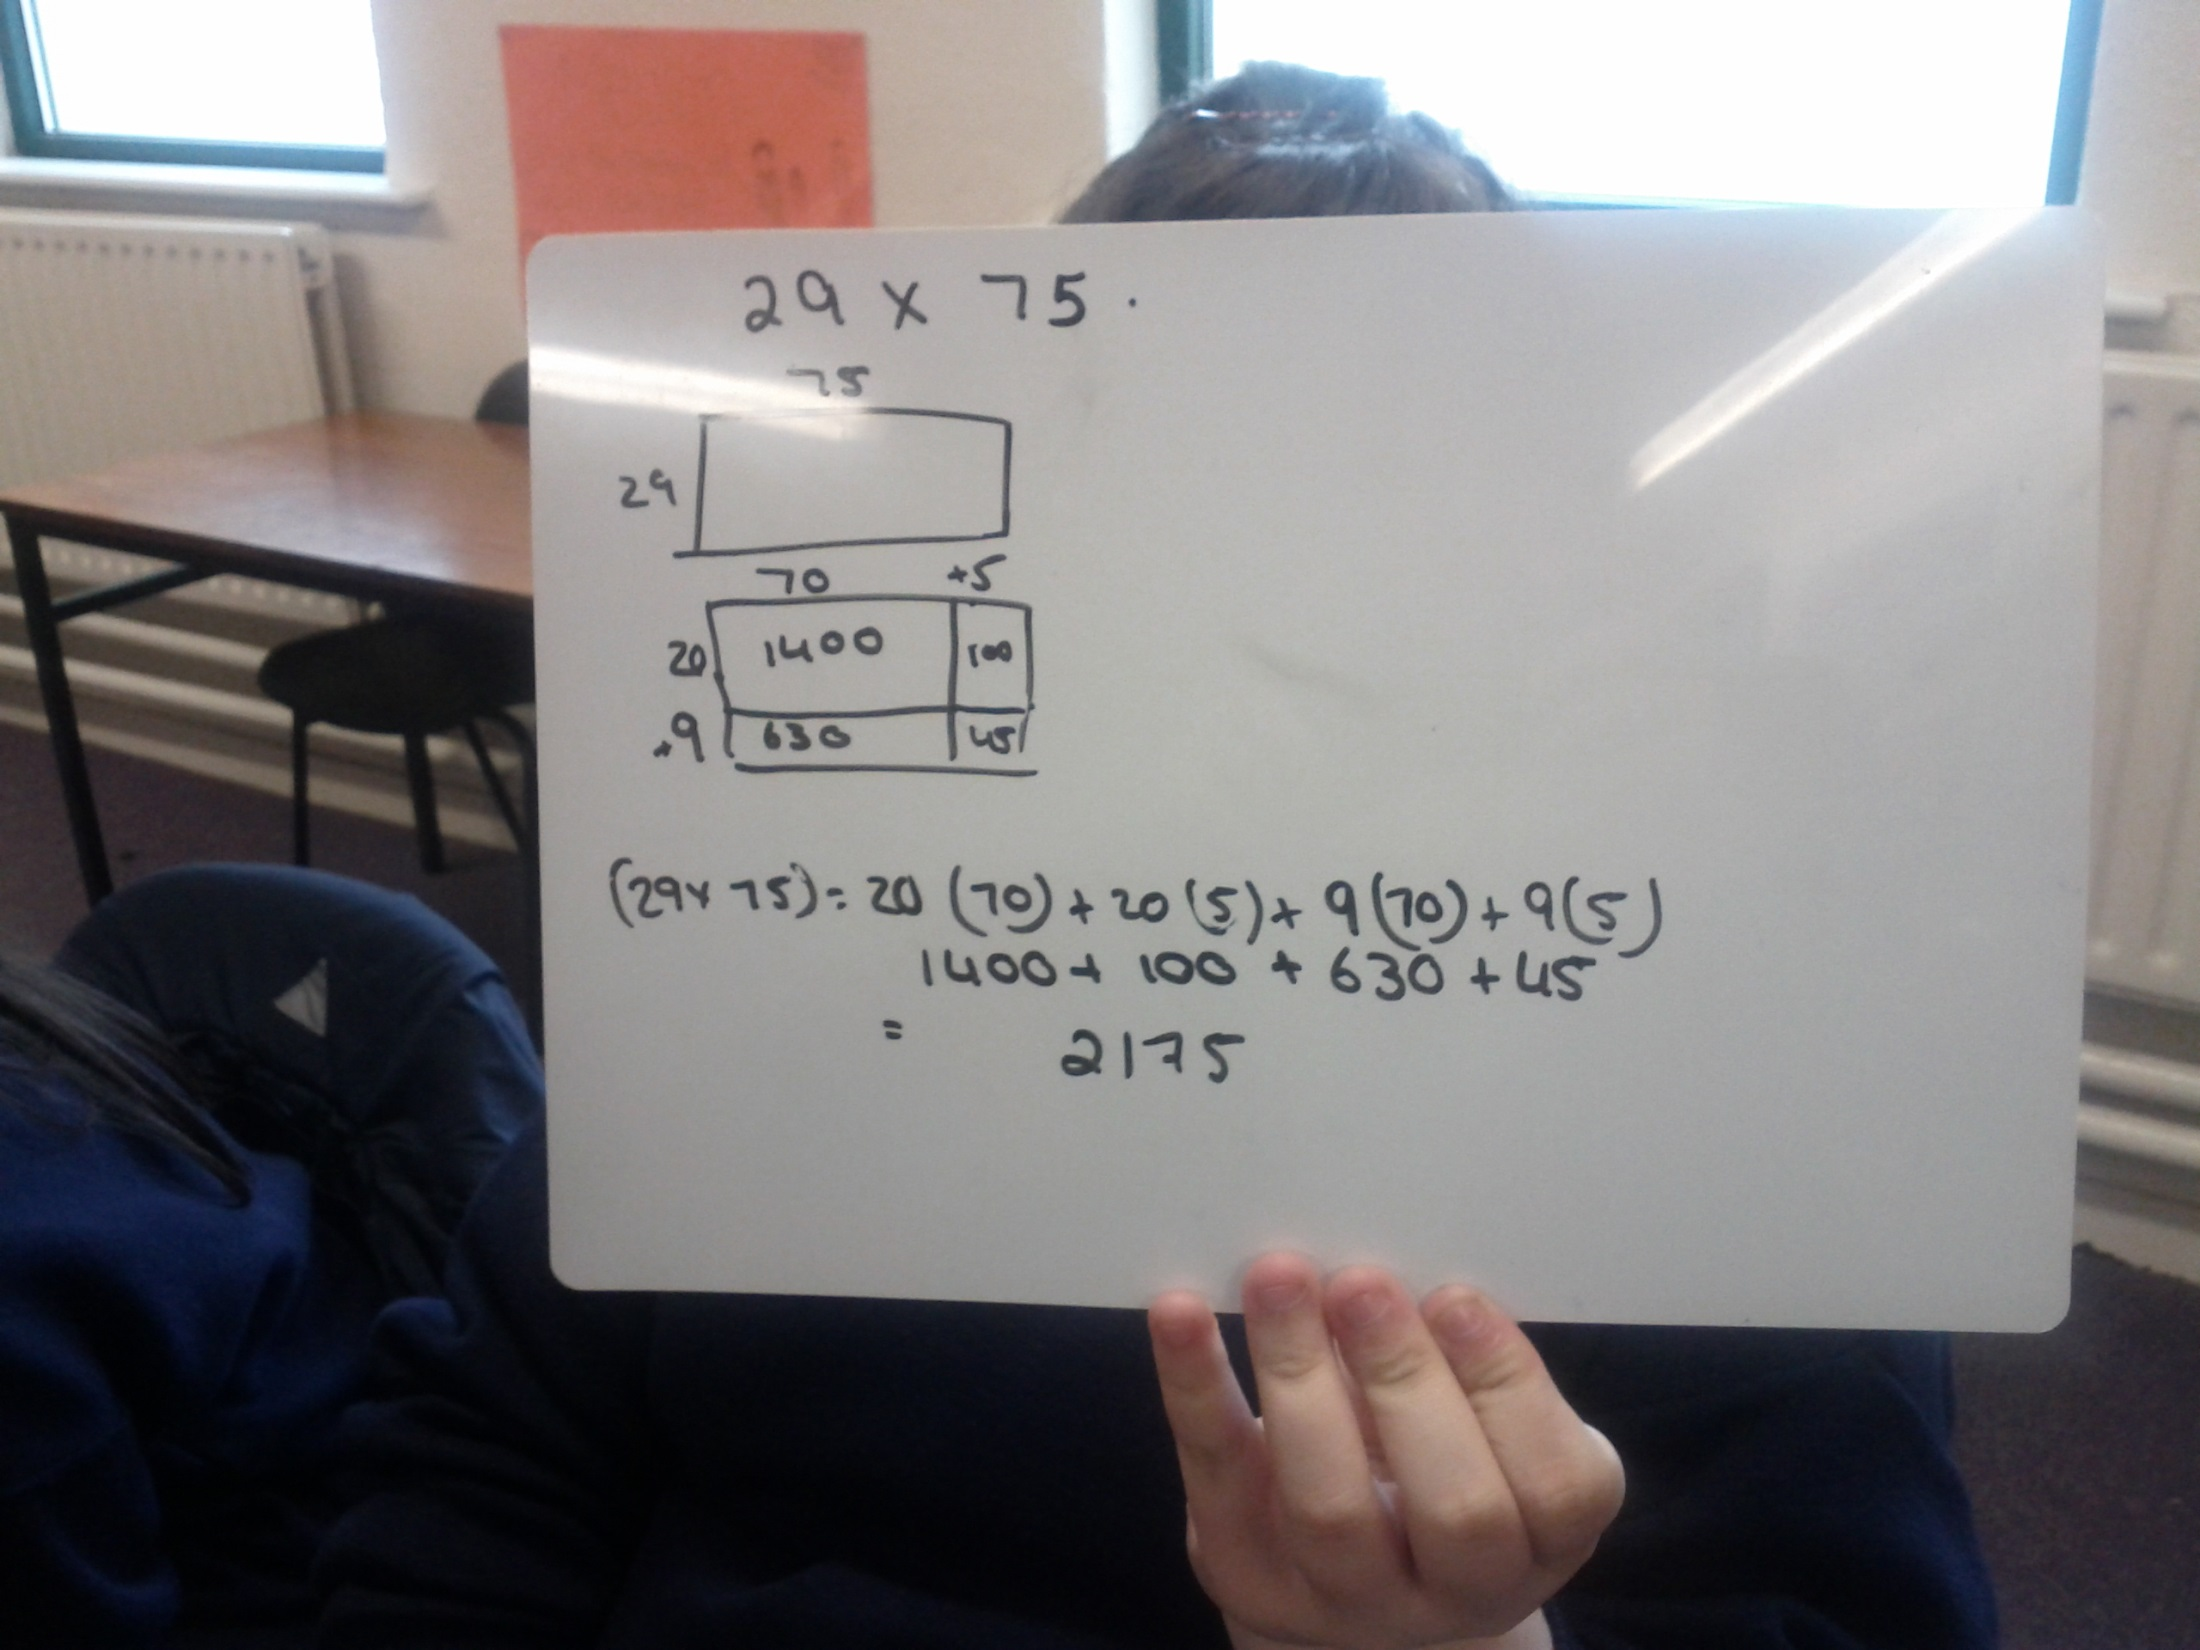 29 x 75.
75
29
70 +5
20 1400 100
+9 630 45
(29x 75) = 20 (70) + 20 (5) + 9 (70) + 9 (5)
1400 + 100 + 630 + 45
= 2175